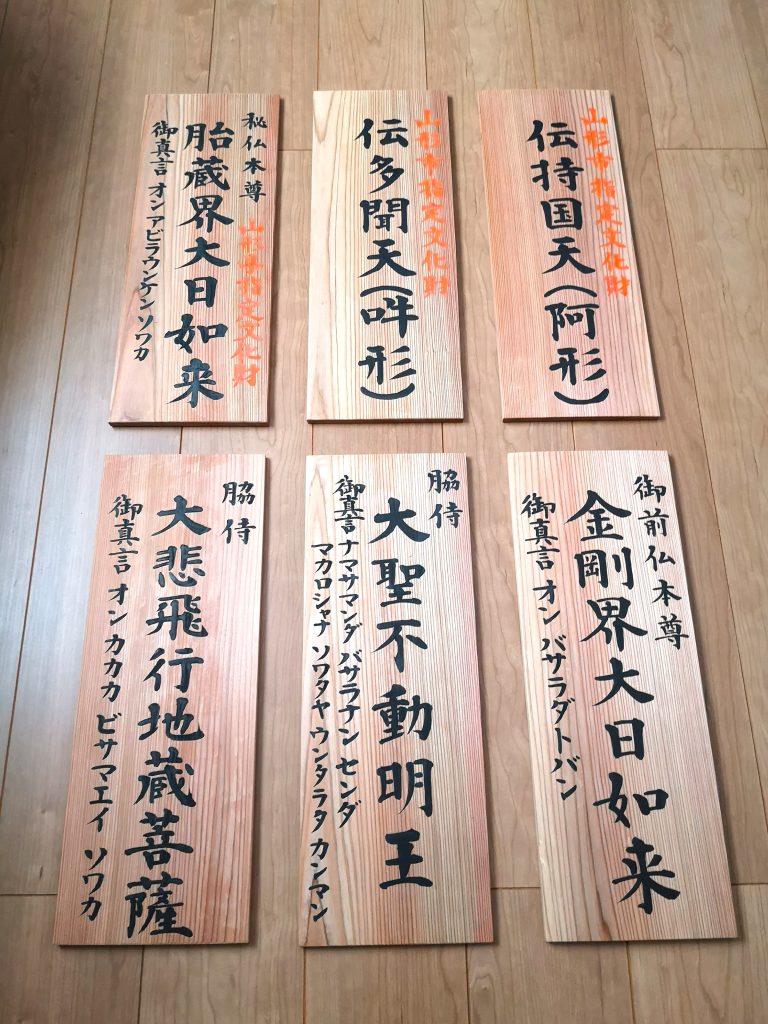 山形市指定文化財
伝持国天(阿形)
山形市指定文化財
伝多聞天(吽形)
秘仏本尊
山形県指定文化財
胎蔵界大日如来
御真言 オンアビラウンケンソワカ
御前仏本尊
金剛界大日如来
御真言 オン バサラダトバン
脇侍
大聖不動明王
御真言 ナマサマンダ バサラナン センダ
マカロシャナ ソワタヤ ウンタラタ カンマン
脇侍
大悲飛行地蔵菩薩
御真言 オン カカカ ビサマエイ ソワカ